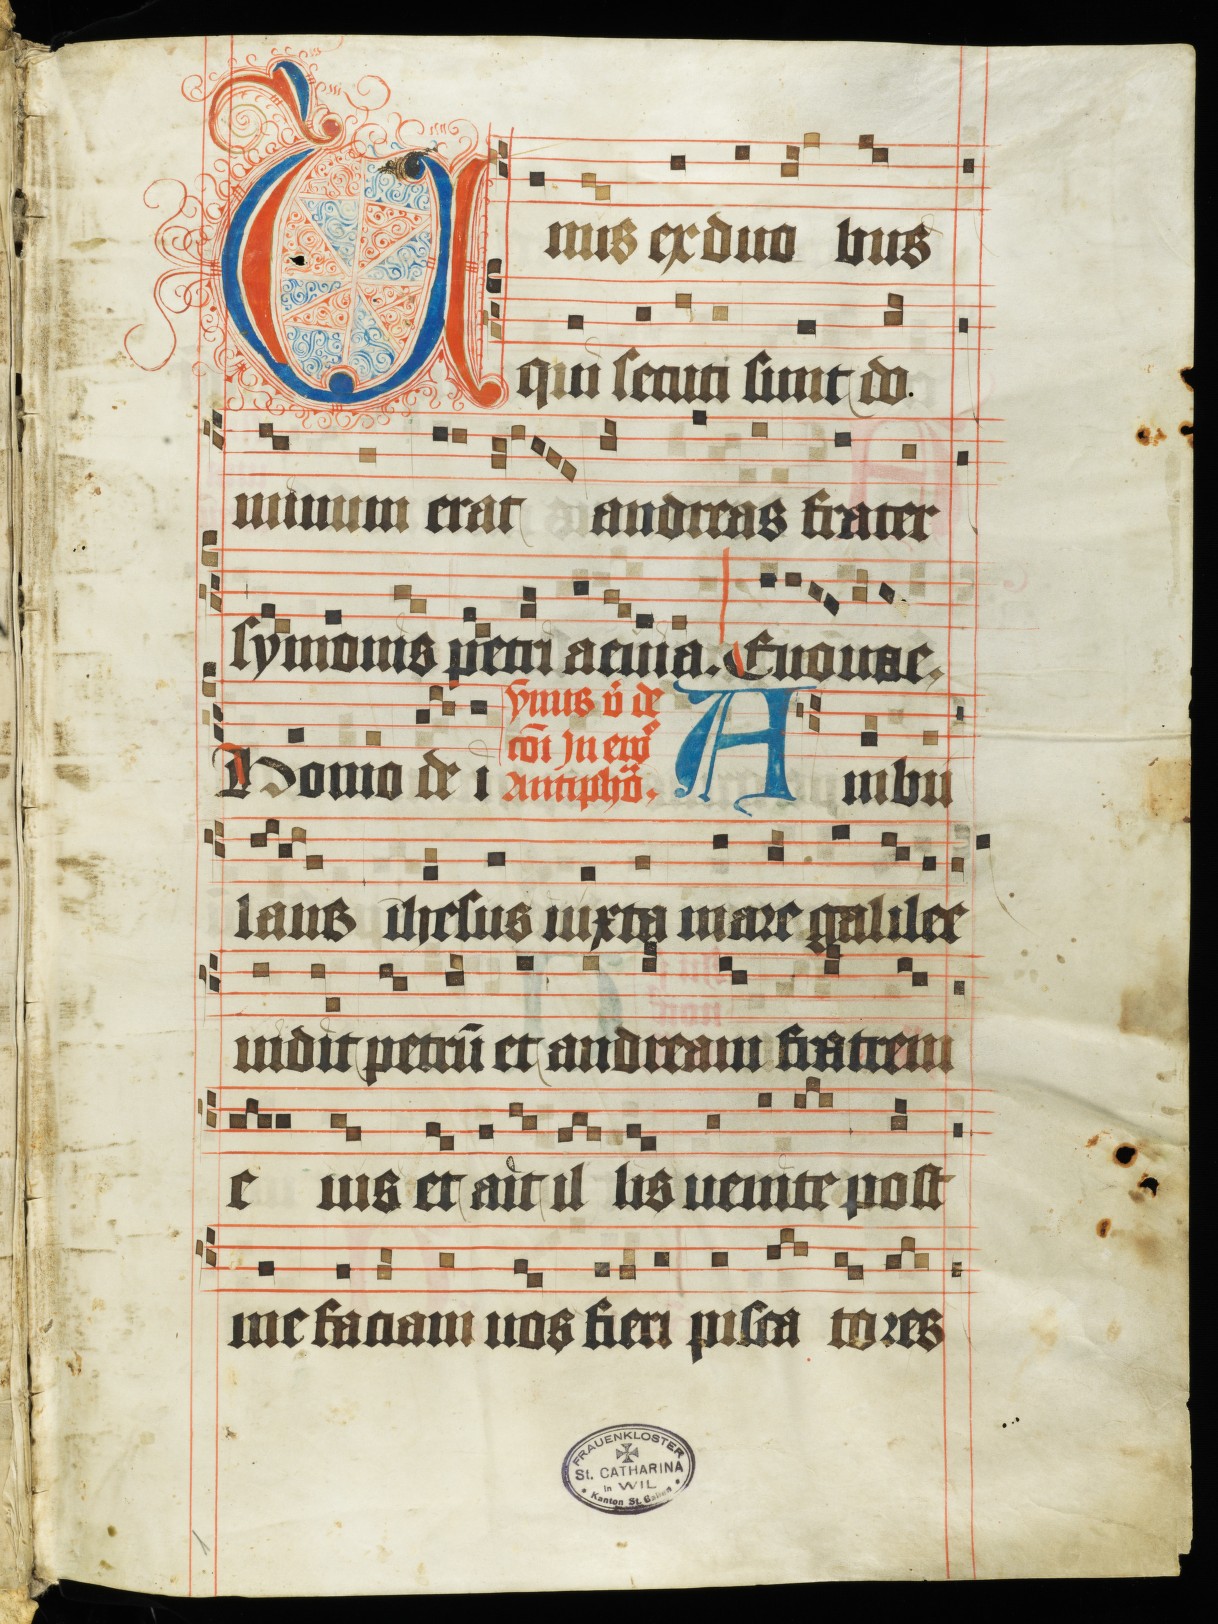 Unus ex duo bus
qui secuti sunt do
minum erat andreas frater
symonis petri aeuia. Euouae.
Homo de i
ȳmus v̄ de
cōi In euō
Antiphō.
Ambu
lans ihesus iuxta mare galilee
uidit petrū et andream fratrem
e ius et ait il lis uenite post
me faciam uos fieri pisca tores
FRAUENKLOSTER
St. CATHARINA
in WIL
Kanton St. Gallen